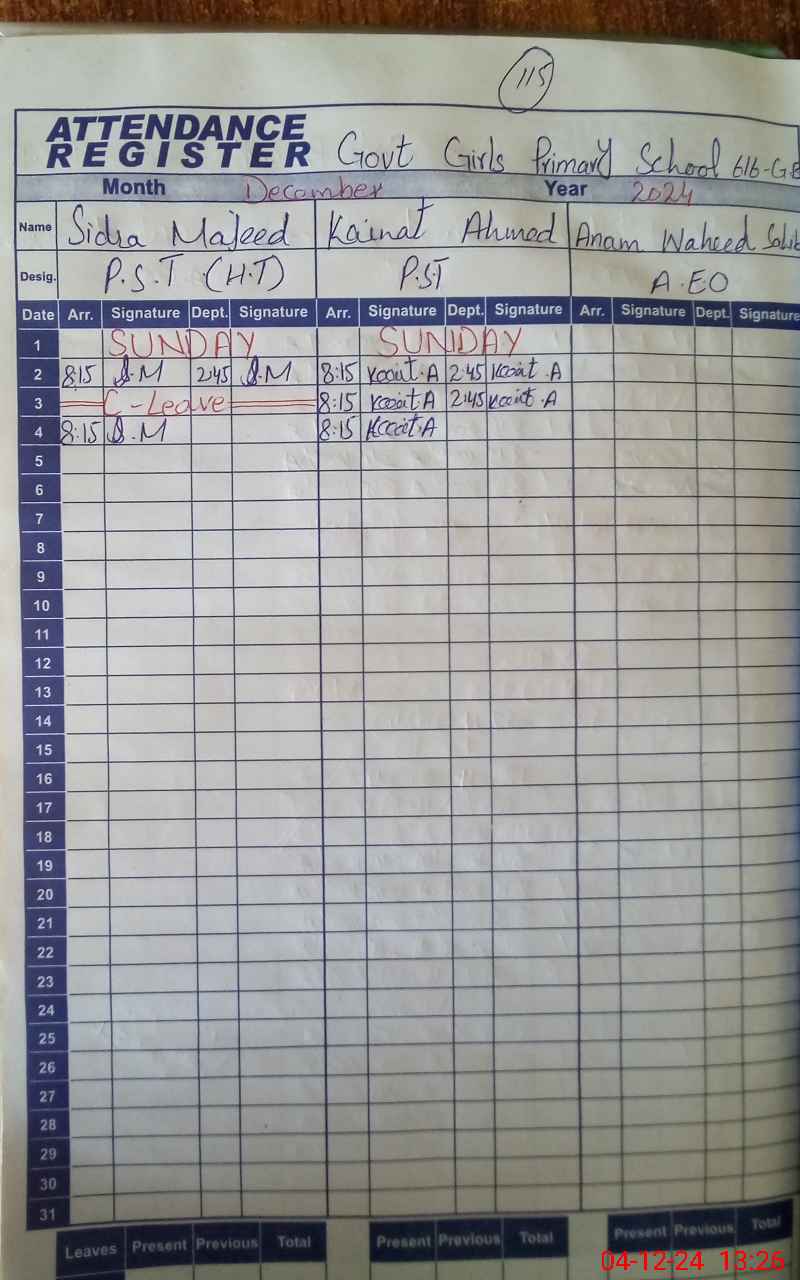 115
ATTENDANCE
REGISTER Govt Girls Primary School 616-GB
Month December Year 2024
Name Sidra Majeed Kainat Ahmad Anam Waheed Sahib
Desig. P.S.T (H.T) P.ST A.EO
Date Arr. Signature Dept. Signature Arr. Signature Dept. Signature Arr. Signature Dept. Signature
1 SUNDAY SUNDAY
2 8:15 S.M 2:45 S.M 8:15 Kainat.A 2:45 Kainat.A
3 C-Leave 8:15 Kainat.A 2:45 Kainat.A
4 8:15 S.M 8:15 Kainat.A
5
6
7
8
9
10
11
12
13
14
15
16
17
18
19
20
21
22
23
24
25
26
27
28
29
30
31
Leaves Present Previous Total Present Previous Total Present Previous Total
04-12-24 13:26